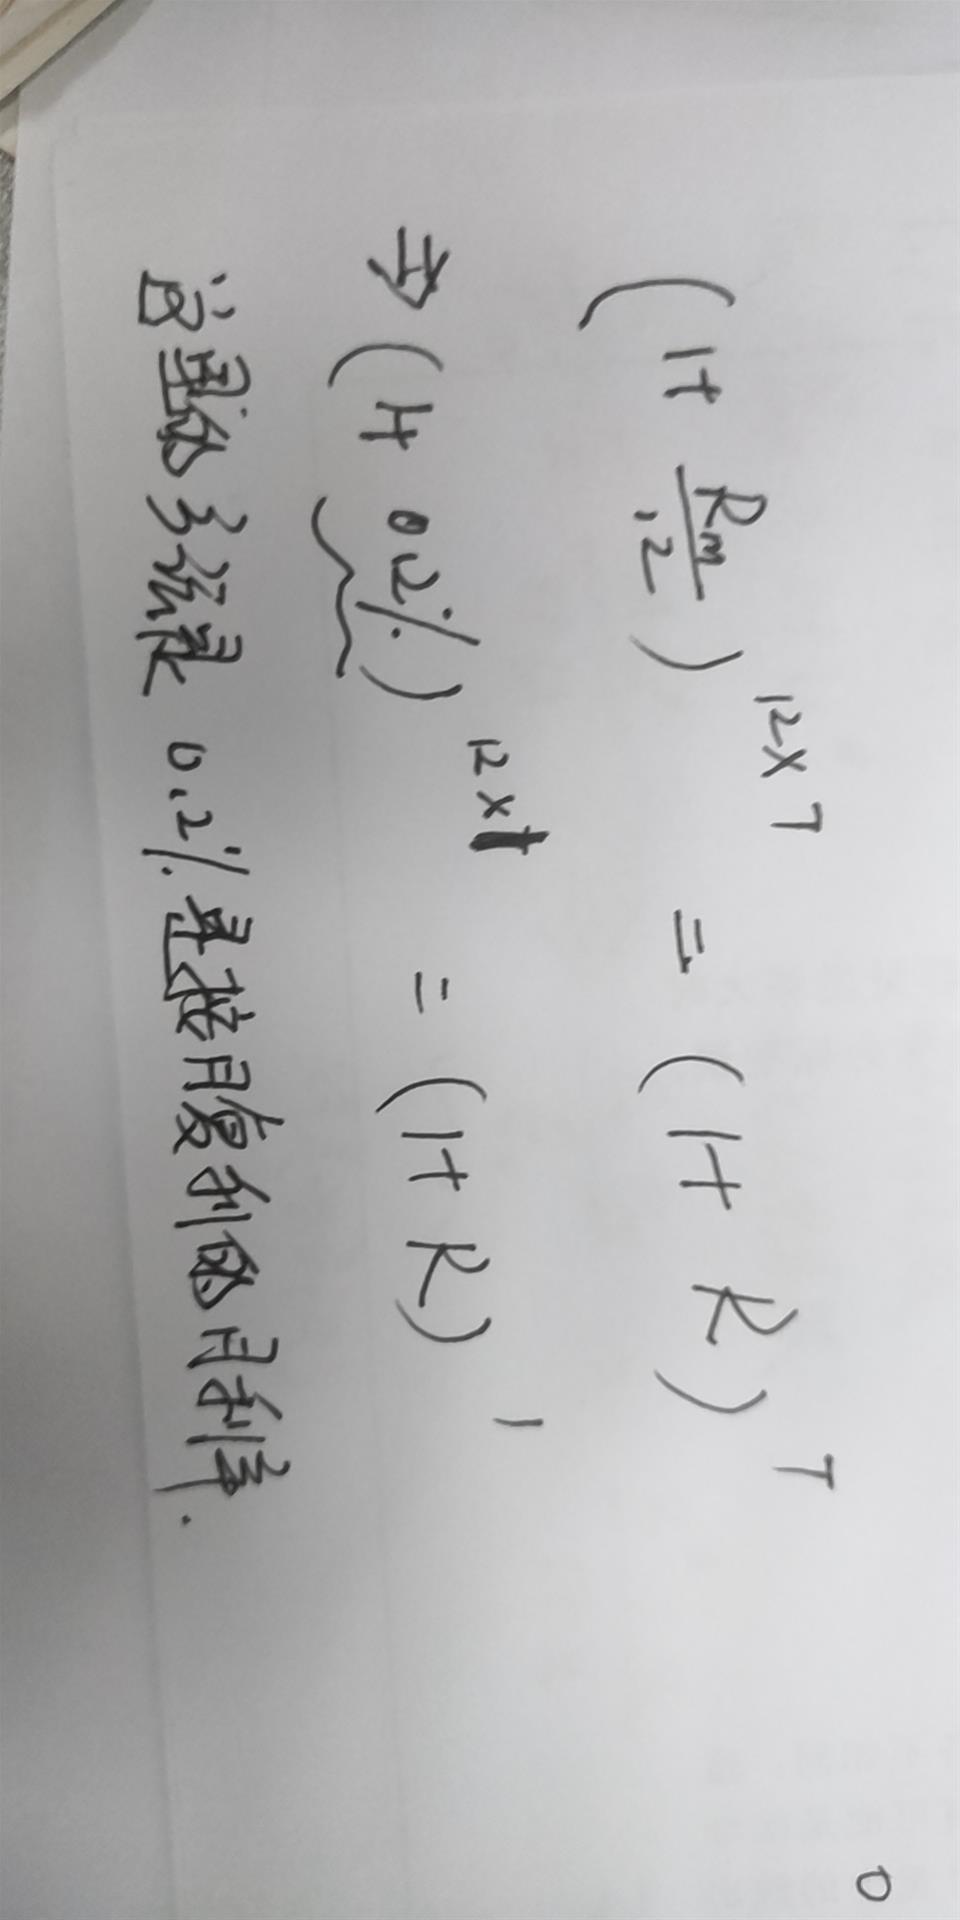 (1+ Rm/12)^12×T = (1+R)^T
⇒ (1+ 0.2%)^12×1 = (1+R)^1
这里的 0.2% 是按月复利的月利率.
0